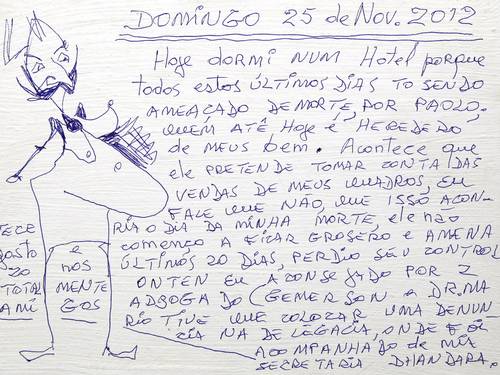 DOMINGO 25 de Nov. 2012
Hoje dormi NUM Hotel porque
todos estos ÚLTIMOS DIAS TO SENDO
AMEAÇADO DE MORTE, POR PAOLO.
QUEM ATÉ Hoje É HEREDEDO,
de MEUS bem. Acontece que
ele PRETENDE TOMAR CONTA DAS
VENDAS DE MEUS QUADROS, EU
FALE QUE NÃO, QUE ISSO ACON-
RIA O DIA DA MINHA MORTE, ele nao
COMENÇO A FICAR GROSERO E AMENA
ÚLTIMOS 20 DIAS, PERDIO SEU CONTROL
ONTEN EU ACONSEJADO POR 2
ADBOGADO (GEMERSON e DR. MA
RIO TIVE QUE COLOCAR UMA DENUN
CIA NA DELEGACIA, ONDE FOI
ACOMPANHADO de MIA
SECRETARIA DHANDARA.
TECE
GOSTO
20
TOTAL
AMI
e
NOS
MENTE
GOS